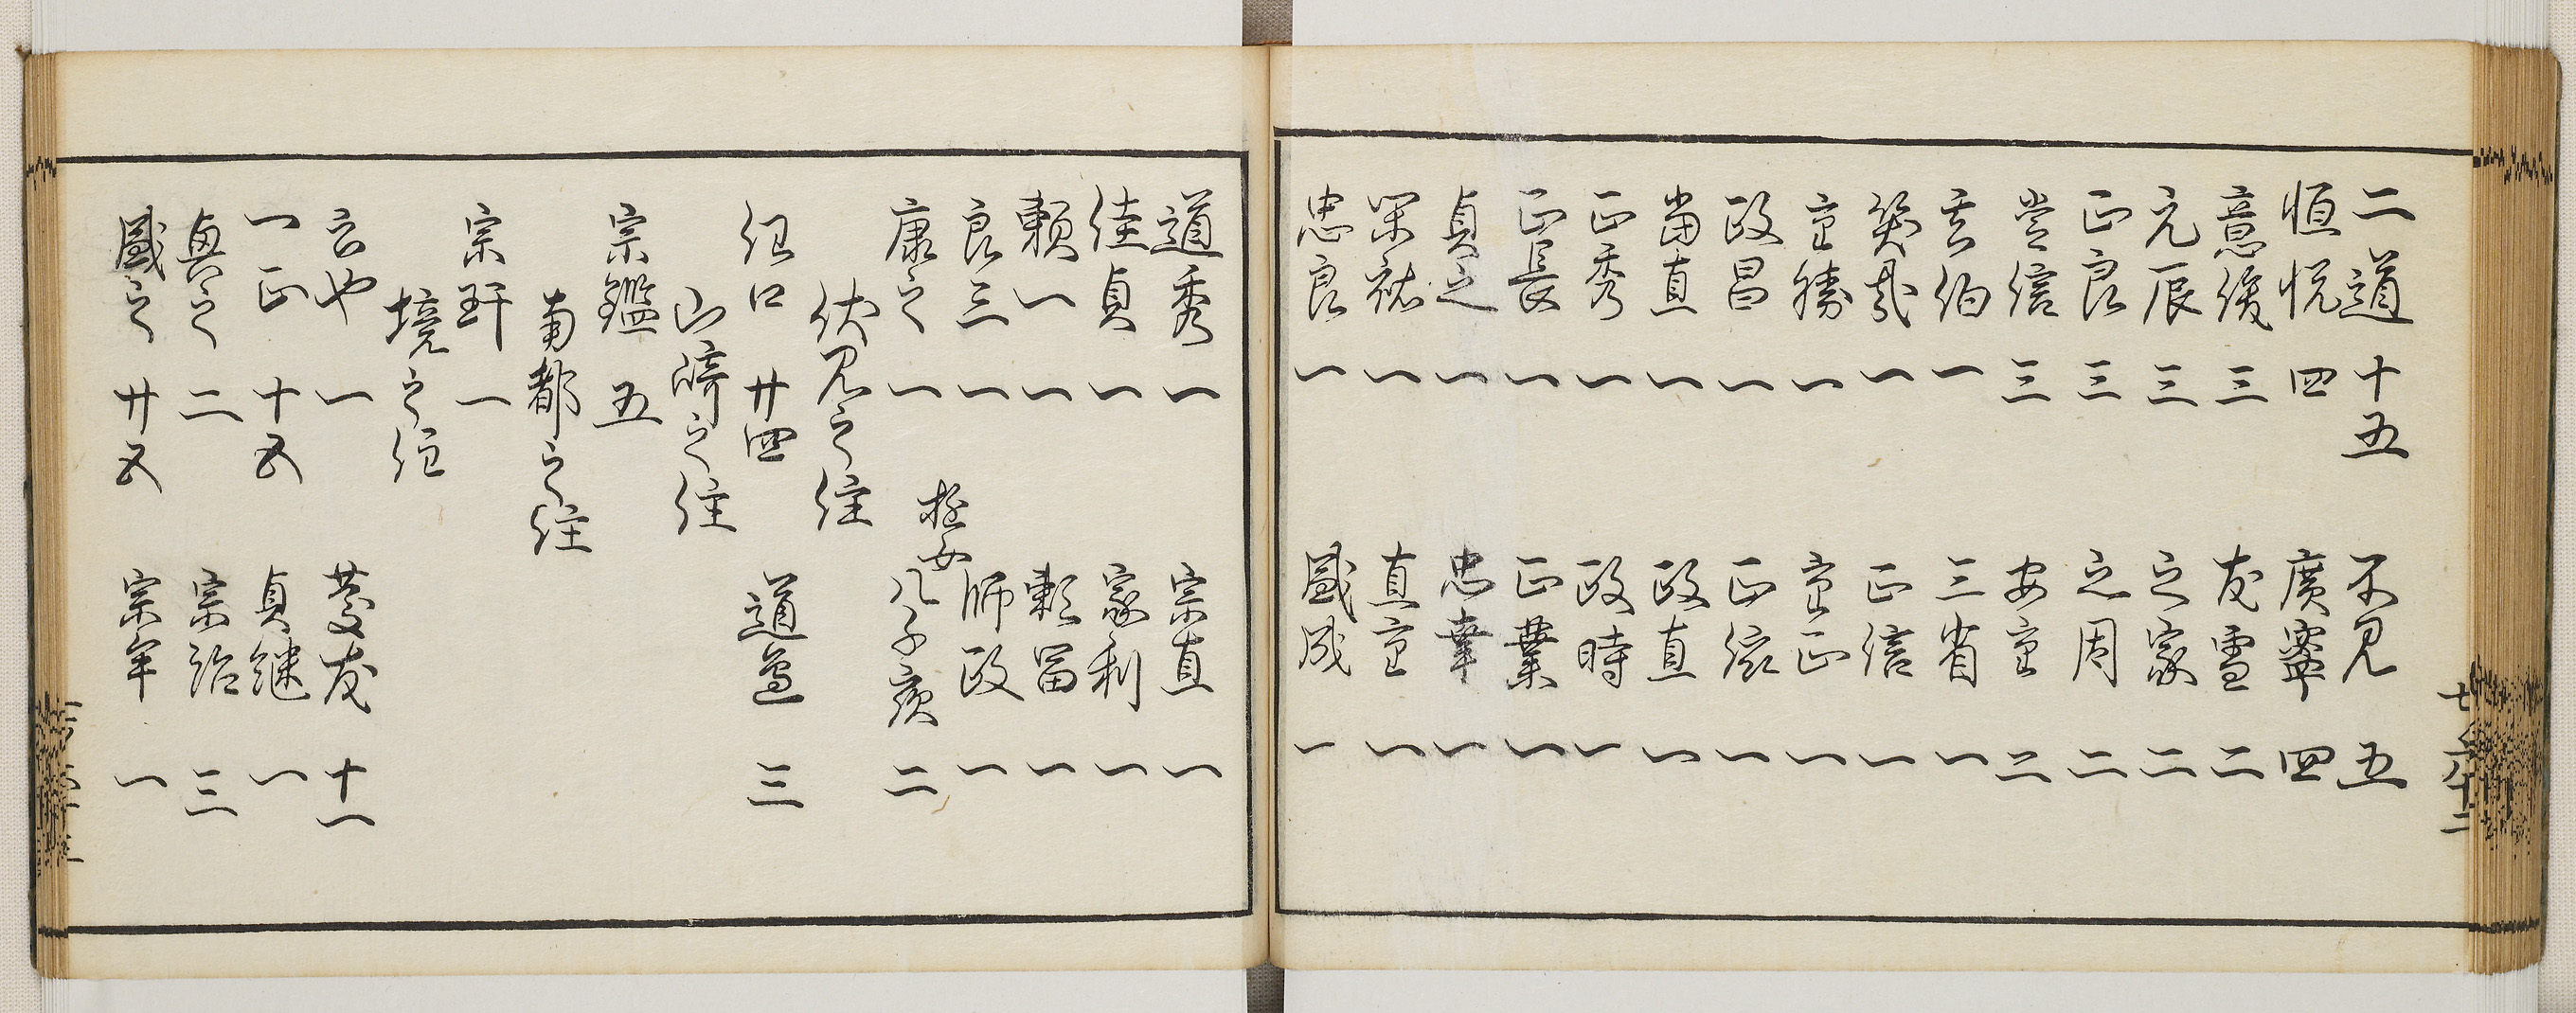 二道 十五 不見 五
恒悦 四 廣寧 四
意後 三 友雪 二
元辰 三 之家 二
正良 三 之周 二
堂信 三 安重 二
玄伯 一 三省 一
一 正信 一
重勝 一 重正 一
政昌 一 正依 一
當直 一 政直 一
正秀 一 政時 一
正長 一 正業 一
貞之 一 忠幸 一
閑祐 一 直重 一
忠良 一 盛成 一
道秀 一 宗直 一
佳貞 一 家利 一
頼一 一 頼富 一
良三 一 師政 一
康之 一 遊女 八千歳 二
伏見之住
任口 廿四 道盛 三
山崎之住
宗鑑 五
南都之住
宗玕 一
境之住
玄也 一 慶友 十一
一正 十五 貞継 一
與之 二 宗治 三
盛之 廿五 宗年 一